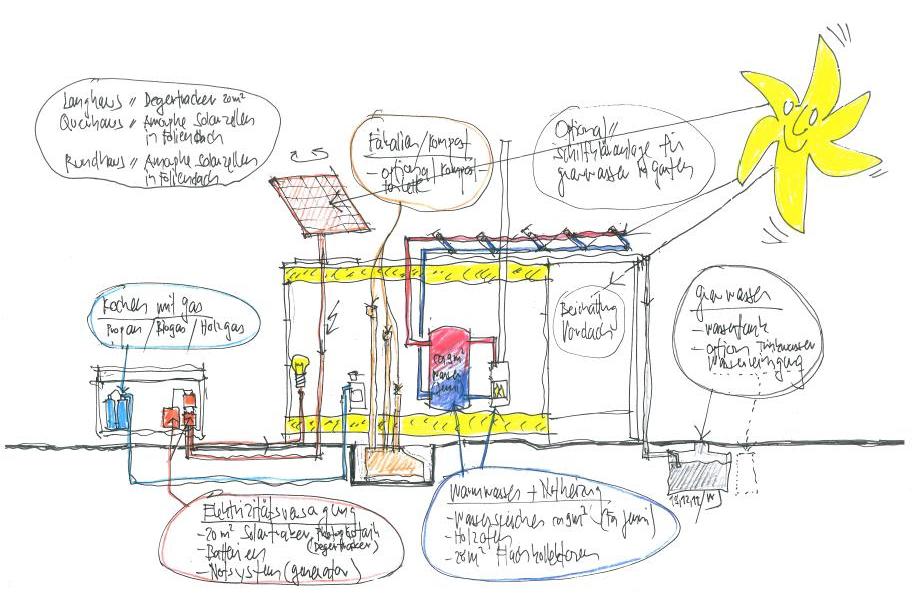 Langhaus // Degertracker 20 m²
Querhaus // Amorphe Solarzellen
in Foliendach
Rundhaus // Amorphe Solarzellen
in Foliendach
Fäkalien/Kompost
- optional/Kompost-
toilette
Optional //
für
grauwasser Garten
Kochen mit gas
Propan / Biogas / Holzgas
Beschattung
Vordach
grauwasser
- wassertank
- option Trinkwasser
Wasserreinigung
wasser
Elektrizitätsversorgung
- 20 m² Solartracker, Photovoltaik
(Degertracker)
- Batterien
- Notsystem (generator)
Warmwasser + Notheizung
- Wasserspeicher
- Holzofen
- 28 m² Flachkollektoren